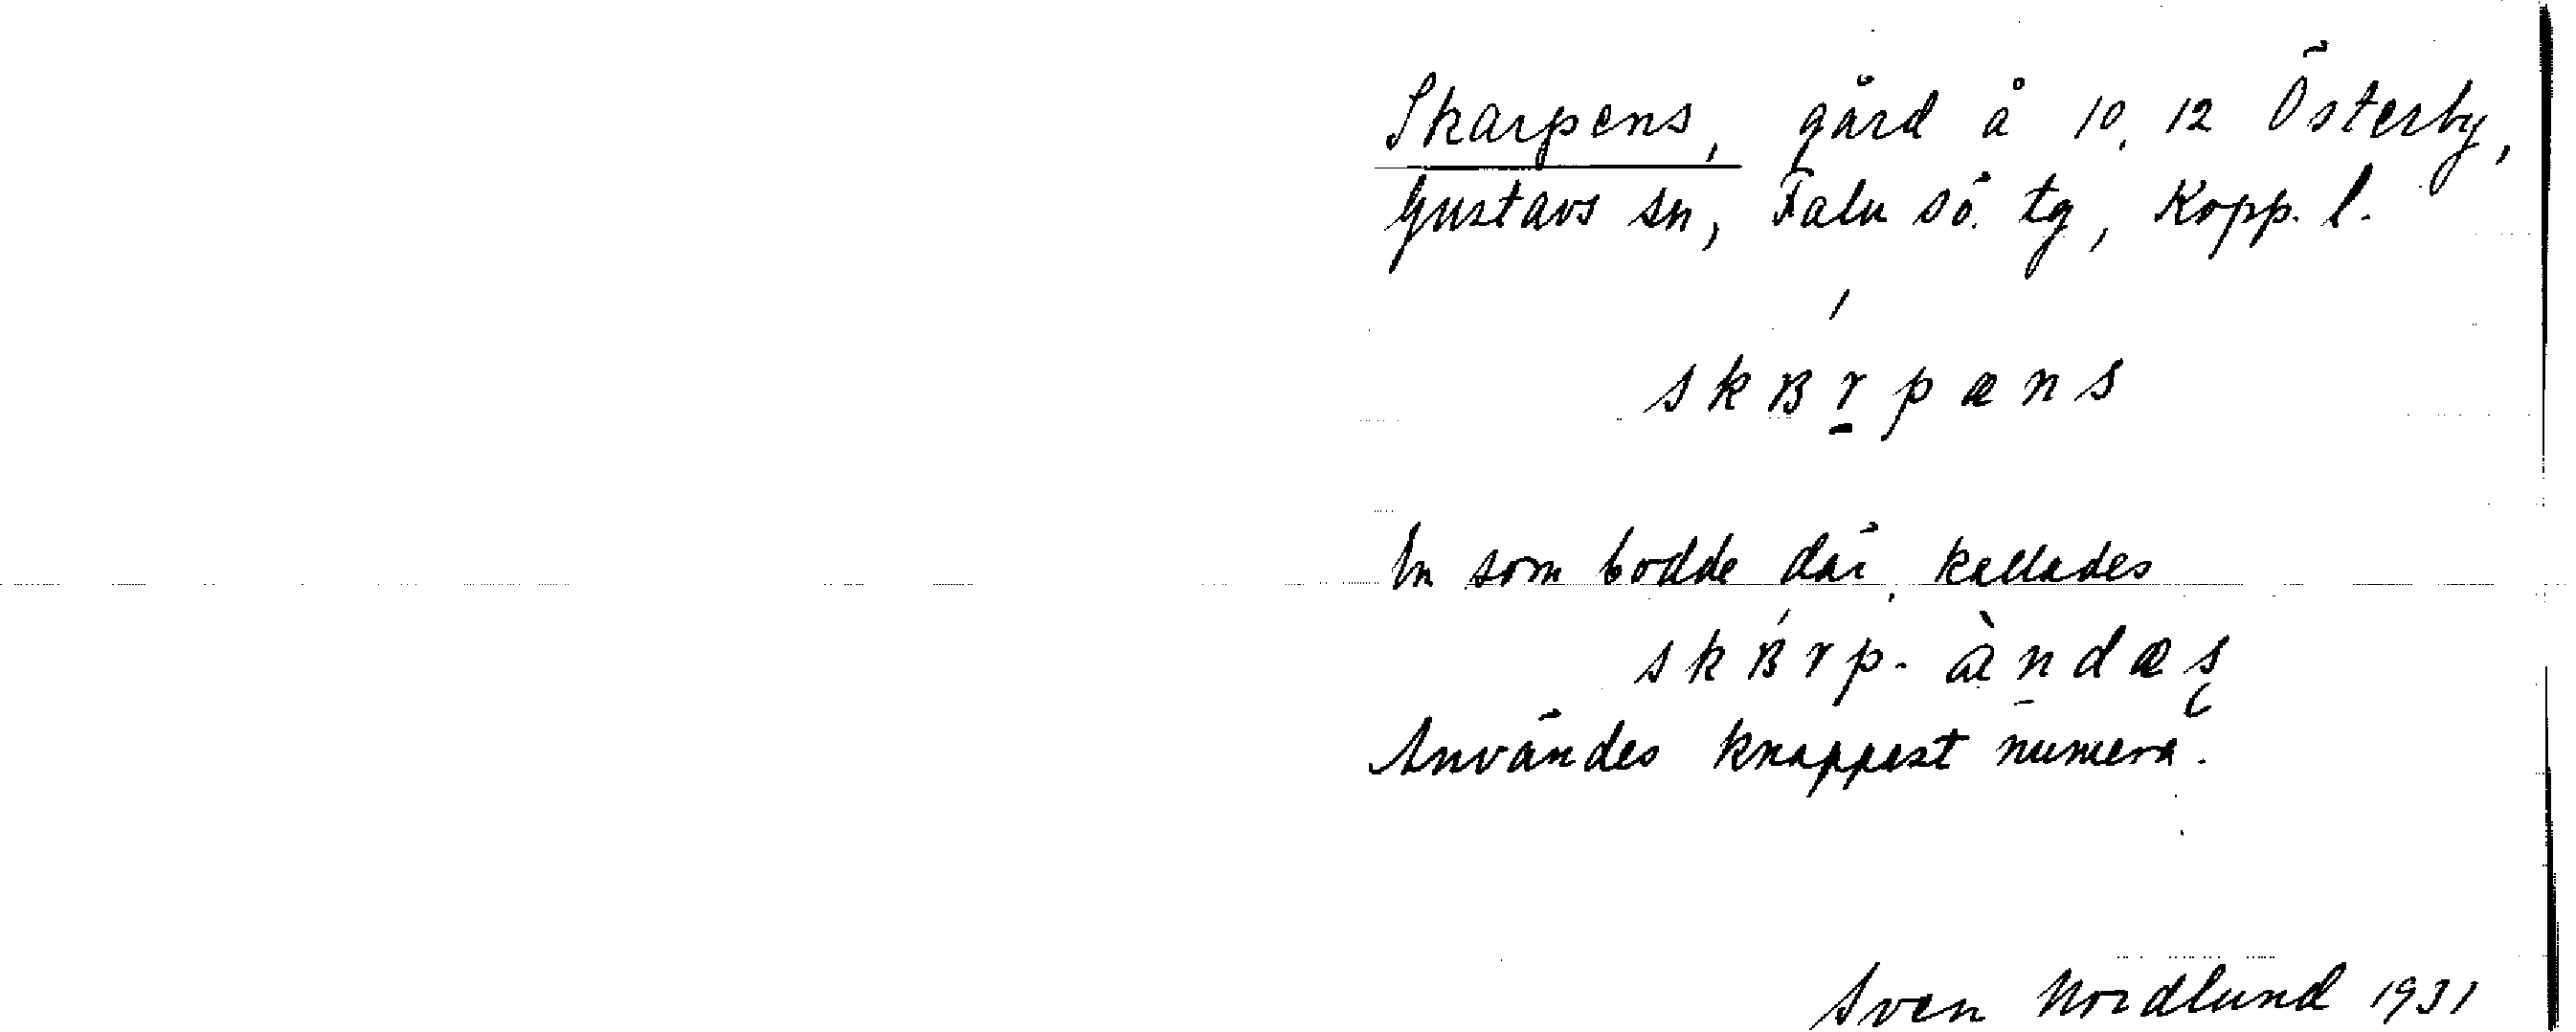 Skarpens, gård å 10, 12 Österby,
Gustavs sn, Falu sö. tg, Kopp. l.
skʙṟ́pæns
En som bodde där, kallades
skʙ́rp-àn̄dæs̨
Användes knappast numera.
Sven Nordlund 1931